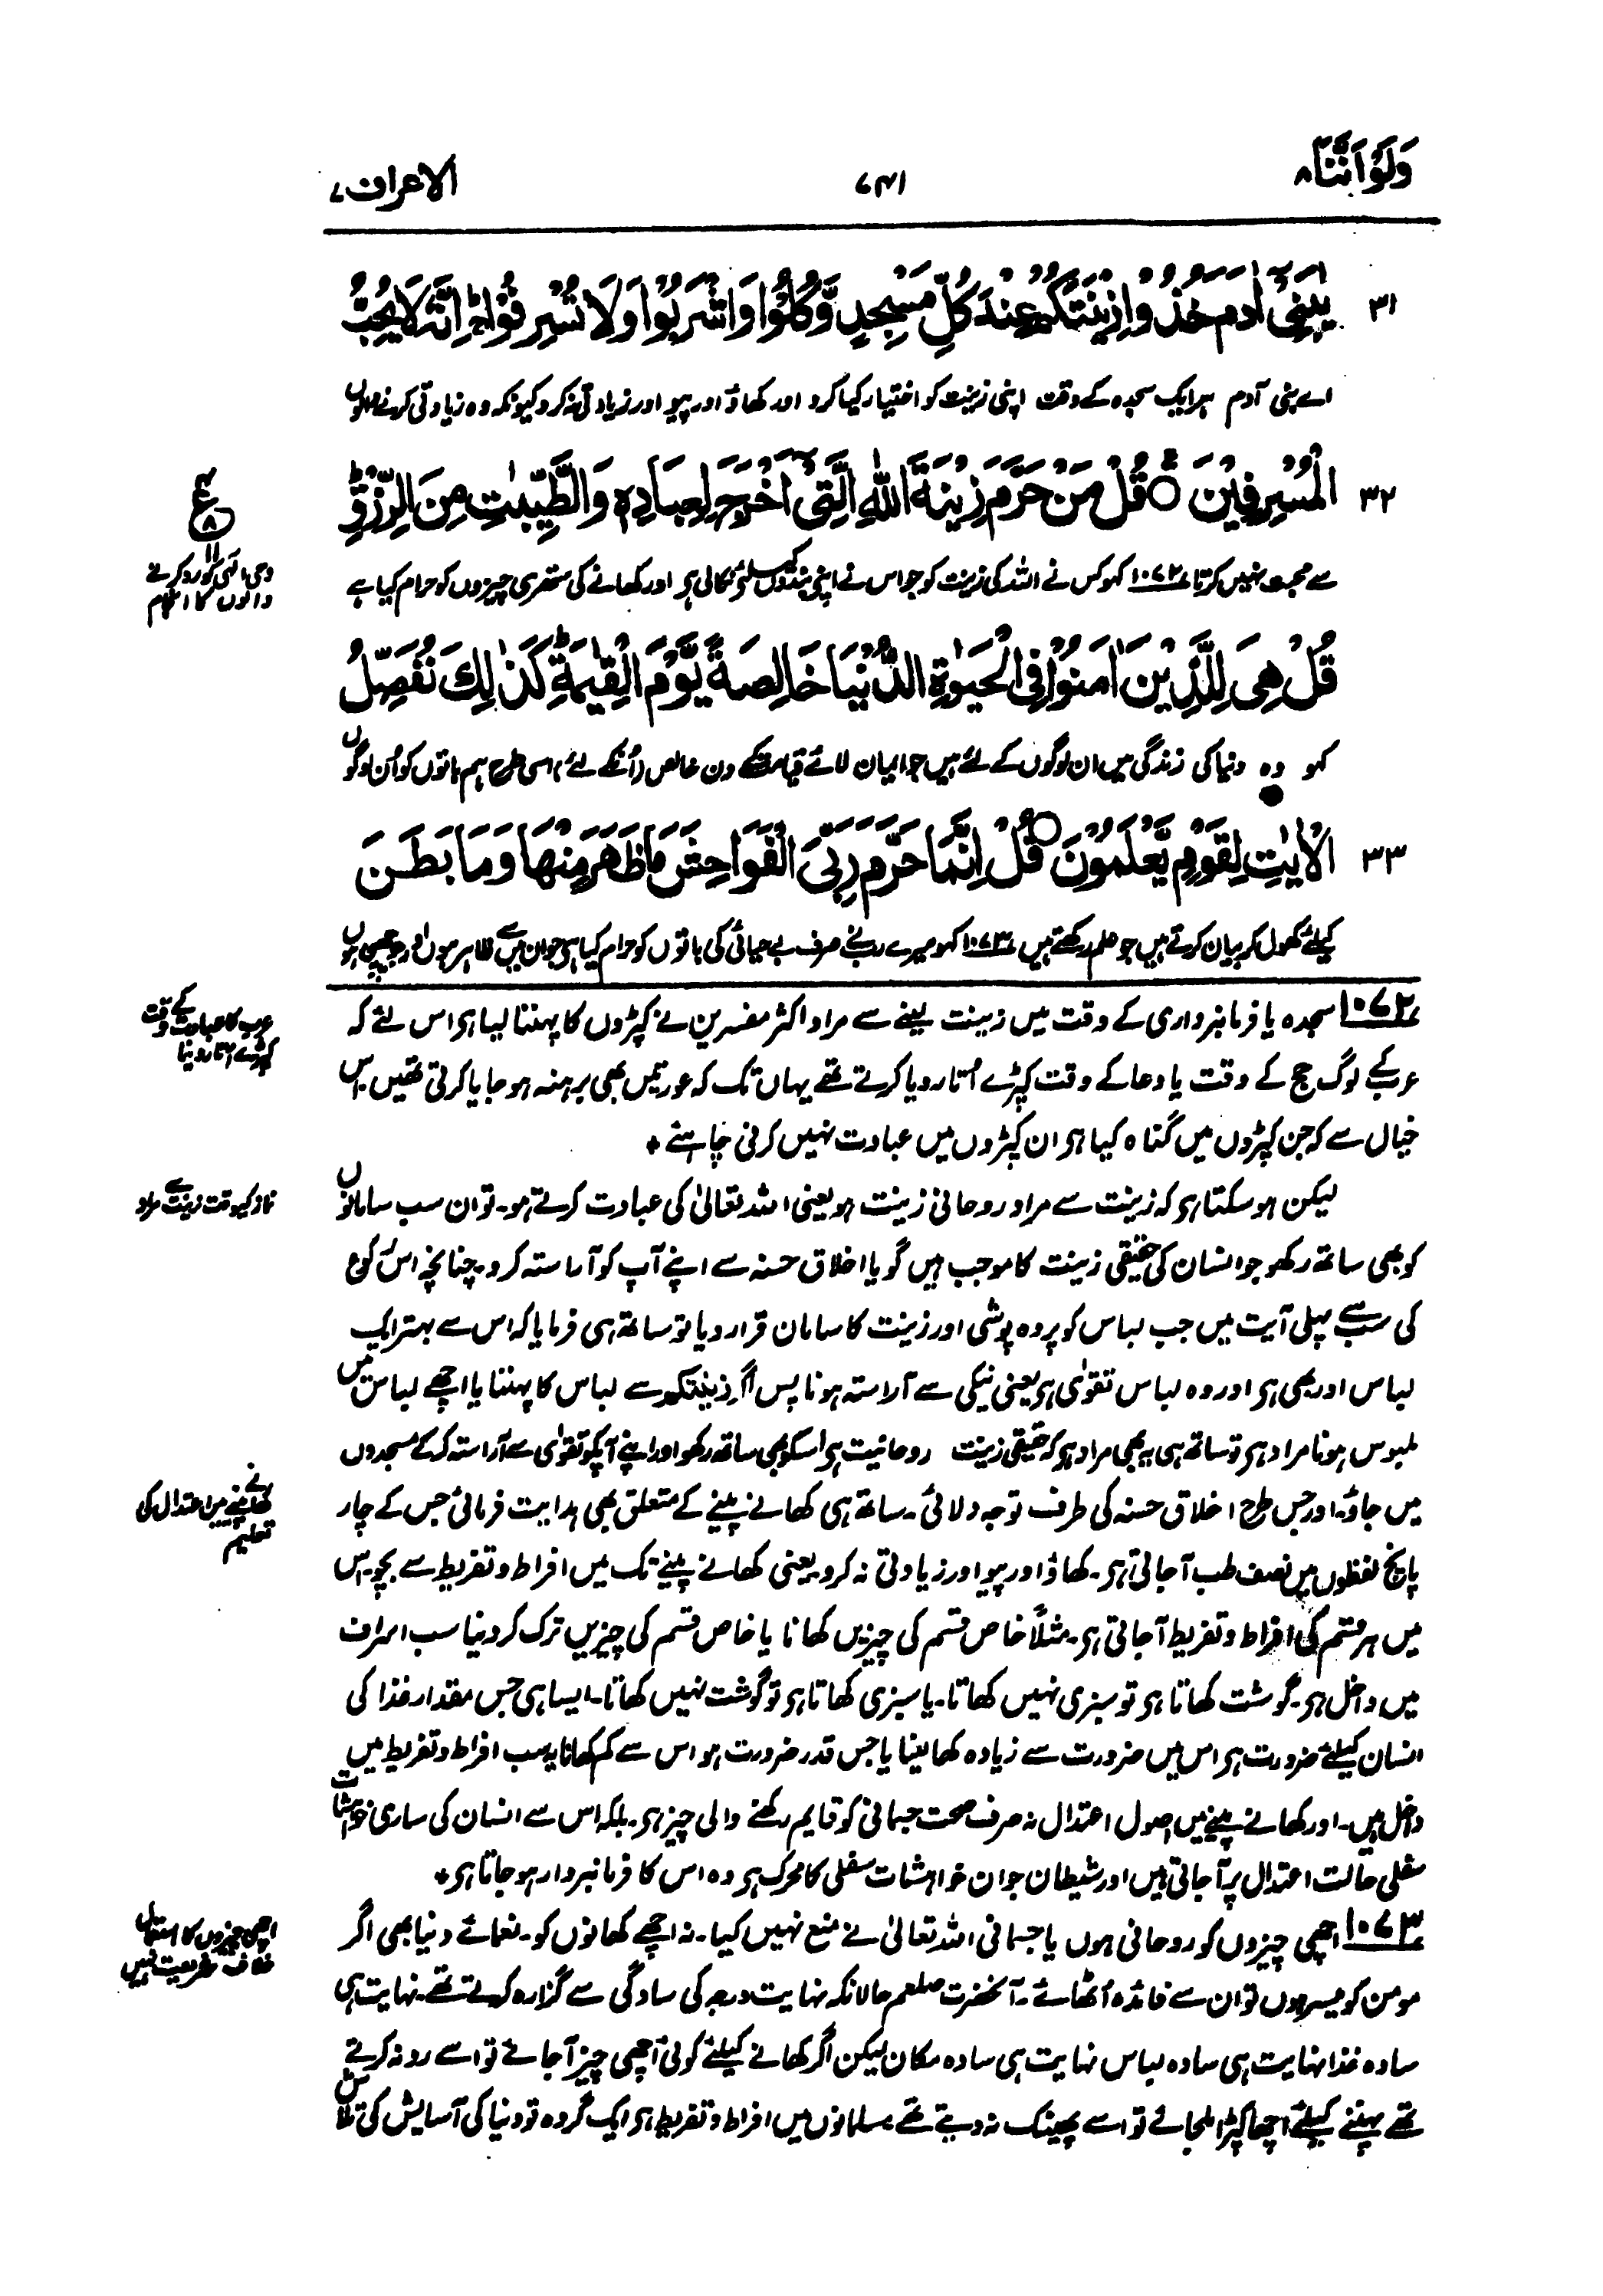 وَلَوْ اَنَّنَا ۸
۷۴۱
الاعراف ۷
۳۱ يٰبَنِيْٓ اٰدَمَ خُذُوْا زِيْنَتَكُمْ عِنْدَ كُلِّ مَسْجِدٍ وَّكُلُوْا وَاشْرَبُوْا وَلَا تُسْرِفُوْا ۚ اِنَّهٗ لَا يُحِبُّ
اے بنی آدم ہر ایک سجدہ کے وقت اپنی زینت کو اختیار کیا کرو اور کھاؤ اور پیو اور زیادتی نہ کرو کیونکہ وہ زیادتی کرنے والوں
۳۲ الْمُسْرِفِيْنَ ○ قُلْ مَنْ حَرَّمَ زِيْنَةَ اللّٰهِ الَّتِيْٓ اَخْرَجَ لِعِبَادِهٖ وَالطَّيِّبٰتِ مِنَ الرِّزْقِ ؕ
ع
۸
۱۱
وحی الٰہی کو رد کرنے
والوں کا انجام
سے محبت نہیں کرتا ۱۰۷۲ کہو کس نے اللہ کی زینت کو جو اس نے اپنے بندوں کیلئے نکالی ہے اور کھانے کی ستھری چیزوں کو حرام کیا ہے
قُلْ هِيَ لِلَّذِيْنَ اٰمَنُوْا فِي الْحَيٰوةِ الدُّنْيَا خَالِصَةً يَّوْمَ الْقِيٰمَةِ ؕ كَذٰلِكَ نُفَصِّلُ
کہو وہ دنیا کی زندگی میں ان لوگوں کے لئے ہیں جو ایمان لائے قیامت کے دن خالص (اُنکے لئے) اسی طرح ہم باتوں کو اُن لوگوں
۳۳ الْاٰيٰتِ لِقَوْمٍ يَّعْلَمُوْنَ ○ قُلْ اِنَّمَا حَرَّمَ رَبِّيَ الْفَوَاحِشَ مَا ظَهَرَ مِنْهَا وَمَا بَطَنَ
کیلئے کھول کر بیان کرتے ہیں جو علم رکھتے ہیں ۱۰۷۳ کہو میرے رب نے صرف بے حیائی کی باتوں کو حرام کیا ہے جو ان میں سے ظاہر ہوں اور جو چھپی ہوں
عرب کا عبادت کے وقت
کپڑے اتار دینا
۱۰۷۲ سجدہ یا فرمانبرداری کے وقت میں زینت لینے سے مراد اکثر مفسرین نے کپڑوں کا پہننا لیا ہے اس لئے کہ
عرب کے لوگ حج کے وقت یا دعا کے وقت کپڑے اُتار دیا کرتے تھے یہاں تک کہ عورتیں بھی برہنہ ہو جایا کرتی تھیں۔ اس
خیال سے کہ جن کپڑوں میں گناہ کیا ہے ان کپڑوں میں عبادت نہیں کرنی چاہئے +
نماز کیوقت زینت سے مراد
لیکن ہو سکتا ہے کہ زینت سے مراد روحانی زینت ہو یعنی اللہ تعالیٰ کی عبادت کرتے ہو۔ تو ان سب سامانوں
کو بھی ساتھ رکھو جو انسان کی حقیقی زینت کا موجب ہیں گویا اخلاق حسنہ سے اپنے آپ کو آراستہ کرو۔ چنانچہ اس رکوع
کی سب سے پہلی آیت میں جب لباس کو پردہ پوشی اور زینت کا سامان قرار دیا تو ساتھ ہی فرمایا کہ اس سے بہتر ایک
لباس اور بھی ہے اور وہ لباس تقویٰ ہے یعنی نیکی سے آراستہ ہونا پس اگر زینتکم سے لباس کا پہننا یا اچھے لباس میں
ملبوس ہونا مراد ہے تو ساتھ ہی یہ بھی مراد ہے کہ حقیقی زینت روحانیت ہے اسکو بھی ساتھ رکھو اور اپنے آپکو تقویٰ سے آراستہ کر کے مسجدوں
کھانے پینے میں اعتدال کی
تعلیم
میں جاؤ۔ اور جس طرح اخلاق حسنہ کی طرف توجہ دلائی۔ ساتھ ہی کھانے پینے کے متعلق بھی ہدایت فرمائی جس کے چار
پانچ لفظوں میں نصف طب آجاتی ہے۔ کھاؤ اور پیو اور زیادتی نہ کرو یعنی کھانے پینے تک میں افراط و تفریط سے بچو۔ اس
میں ہر قسم کی افراط و تفریط آجاتی ہے۔ مثلاً خاص قسم کی چیزیں کھانا یا خاص قسم کی چیزیں ترک کر دینا سب اسراف
میں داخل ہے۔ گوشت کھاتا ہے تو سبزی نہیں کھاتا۔ یا سبزی کھاتا ہے تو گوشت نہیں کھاتا۔ ایسا ہی جس مقدار غذا کی
انسان کیلئے ضرورت ہے اس میں ضرورت سے زیادہ کھا لینا یا جس قدر ضرورت ہو اس سے کم کھانا یہ سب افراط و تفریط میں
داخل ہیں۔ اور کھانے پینے میں اصول اعتدال نہ صرف صحت جسمانی کو قایم رکھنے والی چیز ہے۔ بلکہ اس سے انسان کی ساری خواہشات
سفلی حالت اعتدال پر آجاتی ہیں اور شیطان جو ان خواہشات سفلی کا محرک ہے وہ اس کا فرمانبردار ہو جاتا ہے +
اچھی چیزوں کا استعمال
خلاف شریعت نہیں
۱۰۷۳ اچھی چیزوں کو روحانی ہوں یا جسمانی اللہ تعالیٰ نے منع نہیں کیا۔ نہ اچھے کھانوں کو۔ نعمائے دنیا بھی اگر
مومن کو میسر ہوں تو ان سے فائدہ اُٹھائے۔ آنحضرت صلعم حالانکہ نہایت درجہ کی سادگی سے گزارہ کرتے تھے۔ نہایت ہی
سادہ غذا نہایت ہی سادہ لباس نہایت ہی سادہ مکان لیکن اگر کھانے کیلئے کوئی اچھی چیز آجائے تو اسے رد نہ کرتے
تھے پہننے کیلئے اچھا کپڑا ملجائے تو اسے پھینک نہ دیتے تھے مسلمانوں میں افراط و تفریط ہے ایک گروہ تو دنیا کی آسایش کی تلاش